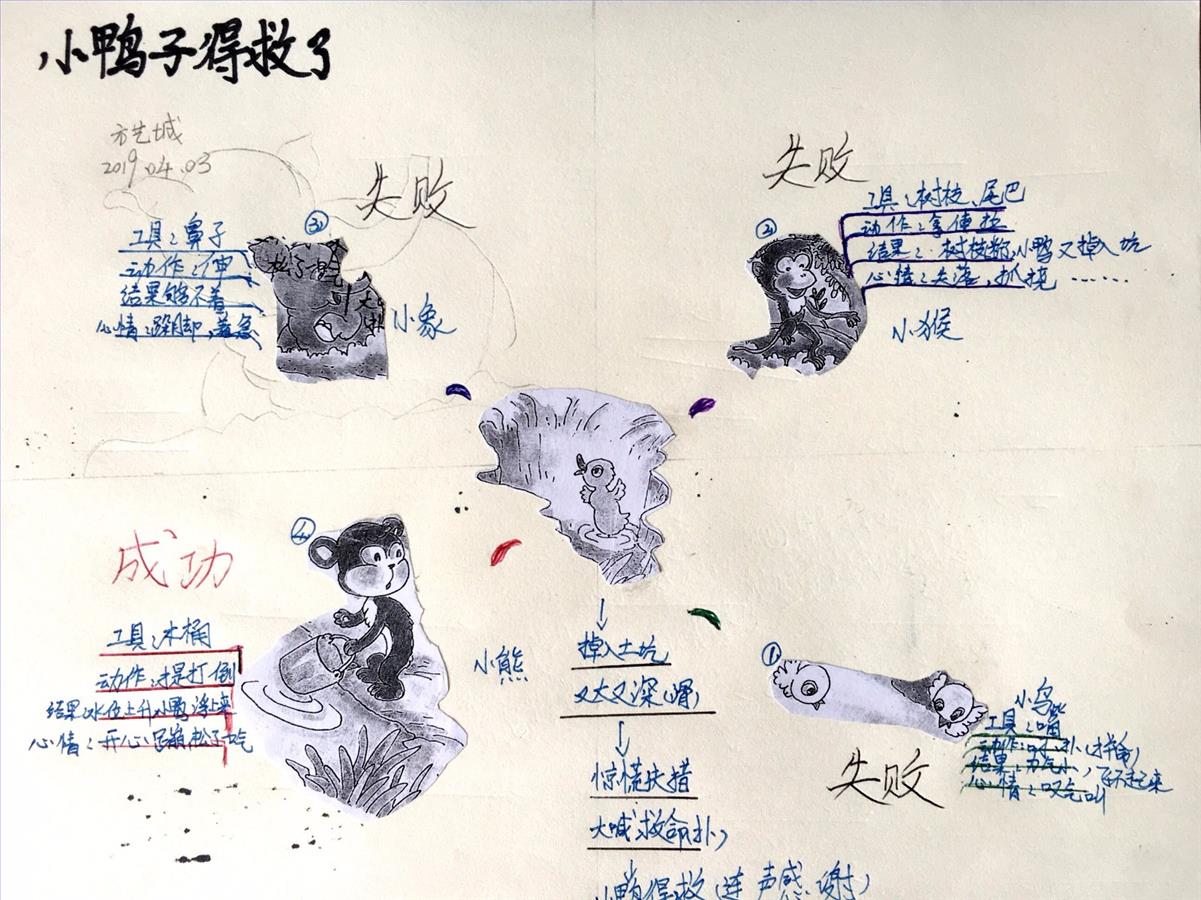 小鸭子得救了
方艺城
2019.04.03
失败
③
工具：鼻子
动作：伸
结果够不着
心情：，着急
小象
失败
②
工具：树枝、尾巴
动作：拿伸拉
结果：树枝断，小鸭又掉入坑
心情：失落，抓挠……
小猴
成功
④
工具：木桶
动作：打倒
结果：水位上升小鸭浮上来
心情：开心松子吃
小熊
掉入土坑
又大又深（滑）
惊慌失措
大喊救命扑
小鸭得救（连声感谢）
①
小鸟
工具：嘴
动作：叼、扑（拼命）
结果：力气小，飞不起来
心情：叹气叫
失败